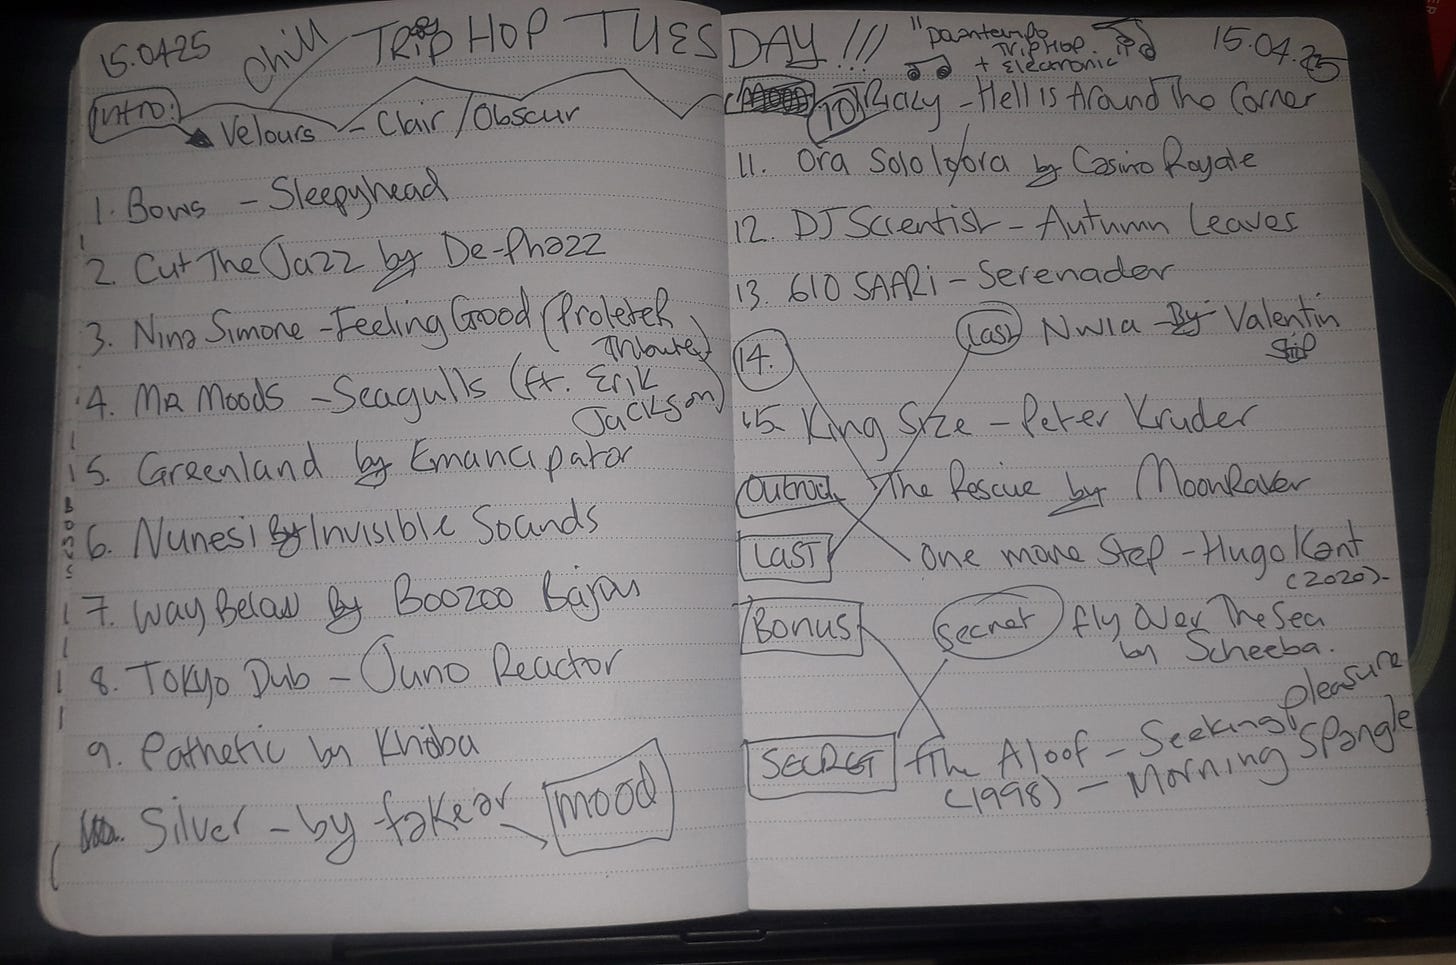 15.0425 Chill TRip HOP TUESDAY!!! "Downtempo
TRiPHOP.
+ Electronic 15.04.25
Intro: Velours - Clair/Obscur
1. Bows - Sleepyhead
2. Cut The Jazz by De-Phazz
3. Nina Simone - Feeling Good (Proleter
Tribute)
4. MR Moods - Seagulls (ft. Erik
Jackson)
5. Greenland by Emancipator
6. Nunesi By Invisible Soands
7. Way Below By Boozoo Bajou
8. Tokyo Dub - Juno Reactor
9. Pathetic by Khoba
Silver - by fakear mood
10 Tricky - Hell is Around The Corner
11. Ora Solo Ioora by Casino Royale
12. DJ Scientist - Autumn Leaves
13. 610 SAARi - Serenader
Last NWIA - By Valentin
Stip
14.
15. King Size - Peter Kruder
Outro The Rescue by MoonRaver
LAST one more Step - Hugo Kant
(2020)-
Bonus Secret fly Over The Sea
by Scheeba.
SECRET The Aloof - Seeking pleasure
(1998) - Morning Spangle